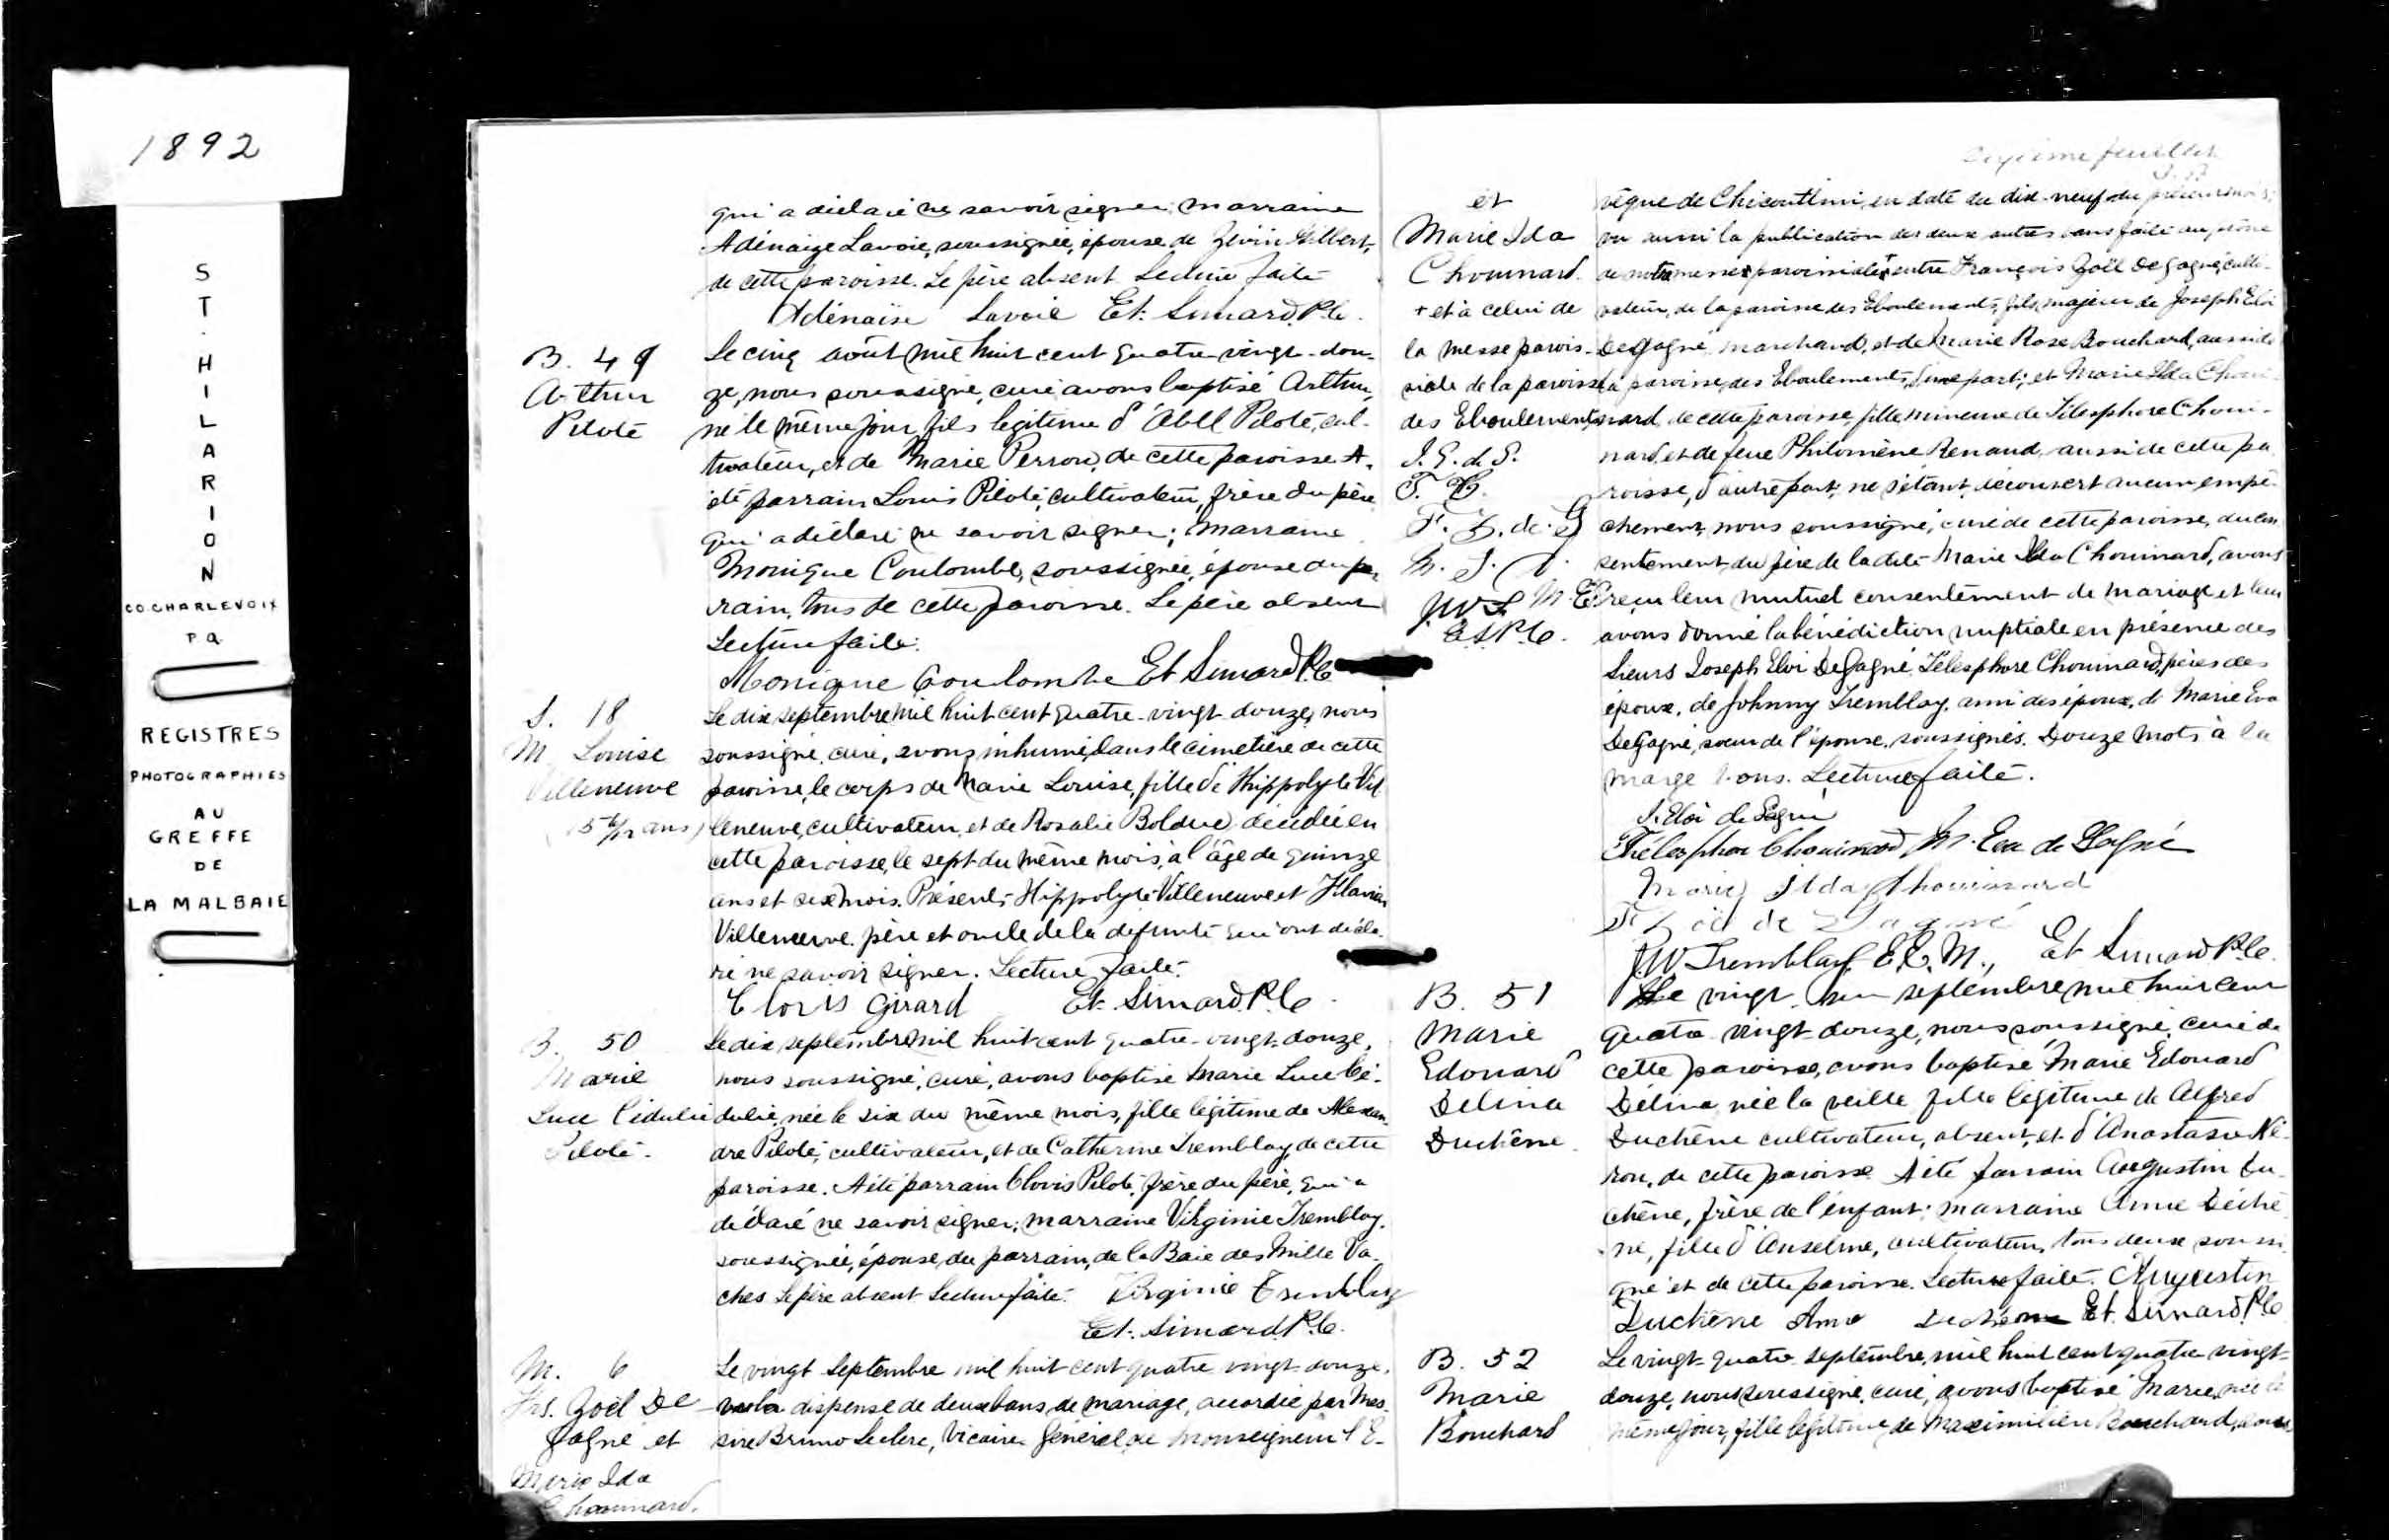 1892
ST. HILARION
CO. CHARLEVOIX
P Q
REGISTRES
PHOTOGRAPHIES
AU
GREFFE
DE
LA MALBAIE
qui a déclaré ne savoir signer; marraine
Adénaize Lavoie, soussignée, épouse de Gilbert,
de cette paroisse. Le père absent Lecture faite
Adénaise Lavoie Et. Simard. P.C.
B. 49
Arthur
Pilote
Le cinq août mil huit cent quatre-vingt-dou-
ze, nous soussigné, curé avons baptisé Arthur,
né le même jour, fils légitime d'Abel Pilote, cul-
tivateur, et de Marie Perron, de cette paroisse A
été parrain Louis Pilote, cultivateur, frère du père
qui a déclaré ne savoir signer; marraine
Monique Coulombe, soussignée, épouse du par
rain, tous de cette paroisse. Le père absent
Lecture faite.
Monique Coulombe Et Simard P.C
S. 18
M. Louise
Villeneuve
(15 6/12 ans)
Le dix septembre mil huit cent quatre-vingt-douze, nous
soussigné, curé, avons inhumé, dans le cimetière de cette
paroisse, le corps de Marie Louise, fille d'Hippolyte Vil
leneuve, cultivateur, et de Rosalie Bolduc, décédée en
cette paroisse, le sept du même mois, à l'âge de quinze
ans et six mois. Présents Hippolyte Villeneuve et Flavien
Villeneuve. père et oncle de la défunte qui ont décla-
ré ne savoir signer. Lecture faite.
Clovis Girard Et. Simard. P.C.
B. 50
Marie
Luce Cédulie
Pilote.
Le dix septembre mil huit cent quatre-vingt-douze,
nous soussigné, curé, avons baptisé Marie Luce Cé-
dulie, née le six du même mois, fille légitime de Alexan
dre Pilote, cultivateur, et de Catherine Tremblay, de cette
paroisse. A été parrain Clovis Pilote, frère du père, qui a
déclaré ne savoir signer; marraine Virginie Tremblay,
soussignée, épouse, du parrain, de la Baie des Mille Va-
ches Le père absent Lecture faite. Virginie Tremblay
Et. Simard. P.C.
M. 6
Frs. Zoël De
Gagné et
Marie Ida
Chouinard.
Le vingt Septembre mil huit cent quatre vingt-douze,
vu la dispense de deux bans de mariage, accordée par Mes-
sire Bruno Leclerc, Vicaire Général de Monseigneur l'E-
feuillet
et
Marie Ida
Chouinard.
+ et à celui de
la messe parois-
siale de la paroisse
des Eboulements
J. E. de G.
T. C.
F. Z. de G
J.W.T. M.E.
E.S. P.C.
vêque de Chicoutimi, en date du dix-neuf du présent mois;
vu aussi la publication des deux autres bans faite au prône
de notre messe paroissiale + entre François Zoël De Gagné, culti-
vateur, de la paroisse des Eboulements, fils, majeur de Joseph Eloi
De Gagné, marchand, et de Marie Rose Bouchard, aussi de
la paroisse, des Eboulements, d'une part; et Marie Ida Choui-
nard, de cette paroisse, fille mineure de Télesphore Choui-
nard, et de feue Philomène Renaud, aussi de cette pa
roisse, d'autre part; ne s'étant découvert aucun empê-
chement, nous soussigné, curé de cette paroisse, du con
sentement du père de la dite Marie Ida Chouinard, avons
reçu leur mutuel consentement de mariage et leur
avons donné la bénédiction nuptiale en présence des
Sieurs Joseph Eloi De Gagné Télesphore Chouinard, pères des
époux, de Johnny Tremblay, ami des époux, de Marie Eva
De Gagné, soeur de l'époux, soussignés. Douze mots à la
marge bons. Lecture faite.
J. Eloi de Gagné
Thélesphore Chouinard M. Eva de Gagné
Marie Ilda Chouinard
F. Zoël de Gagné
J.W Tremblay E.E.M., Et Simard P.C.
B. 51
Marie
Edouard
Délina
Duchêne
Le vingt un septembre mil huit cent
quatre vingt-douze, nous soussigné, curé de
cette paroisse, avons baptisé Marie Edouard
Délina née la veille fille légitime de Alfred
Duchêne cultivateur, absent, et d'Anastasie Né-
ron, de cette paroisse A été parrain Augustin Du-
chêne, frère de l'enfant; marraine Anne Dechê-
ne, fille d'Anselme, cultivateur, tous deux soussi-
gné et de cette paroisse. Lecture faite. Augustin
Duchêne Et. Simard P.C
B. 52
Marie
Bouchard
Le vingt-quatre septembre, mil huit cent quatre vingt-
douze, nous soussigné, curé, avons baptisé Marie, née le
même jour, fille légitime de Maximilien Bouchard,